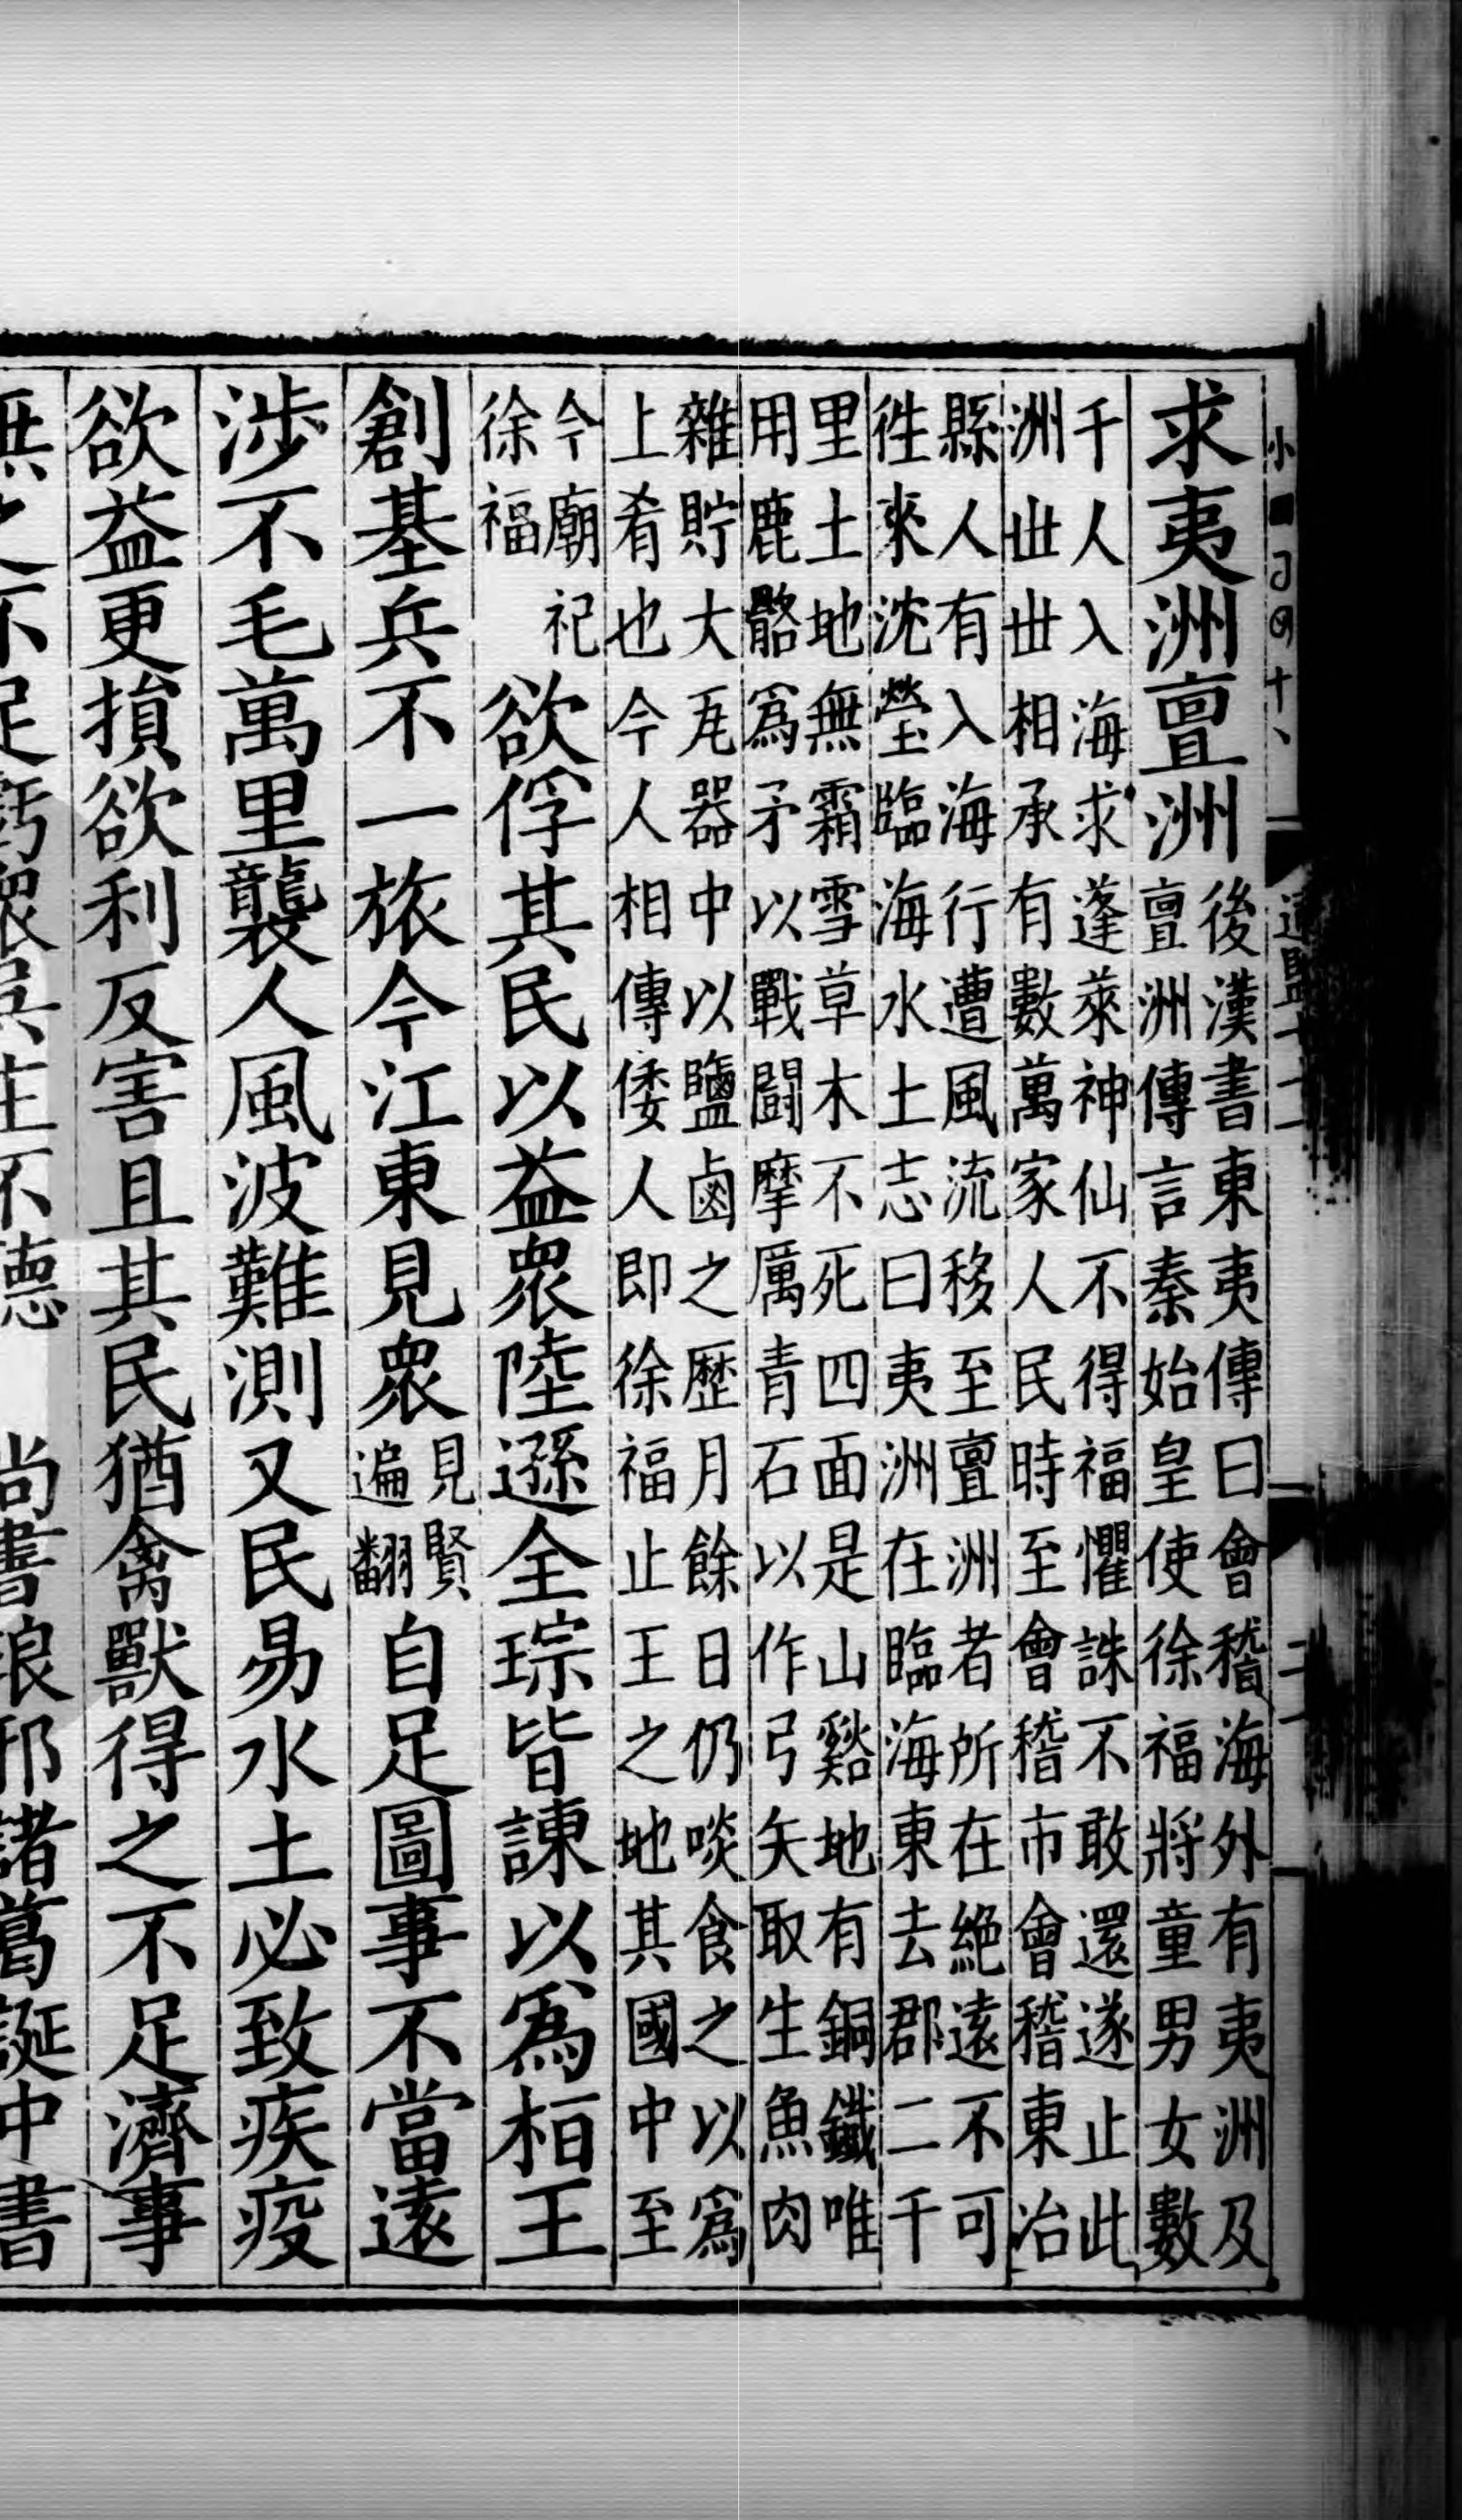 求夷洲亶洲
後漢書東夷傳曰會稽海外有夷洲及
亶洲傳言秦始皇使徐福將童男女數
千人入海求蓬萊神仙不得福懼誅不敢還遂止此
洲丗丗相承有數萬家人民時至會稽市會稽東冶
縣人有入海行遭風流移至亶洲者所在絶遠不可
徃來沈瑩臨海水土志曰夷洲在臨海東去郡二千
里土地無霜雪草木不死四面是山谿地有銅鐵唯
用鹿骼爲矛以戰鬭摩厲青石以作弓矢取生魚肉
雜貯大瓦器中以鹽鹵之歷月餘日仍啖食之以爲
上肴也今人相傳倭人即徐福止王之地其國中至
今廟祀
徐福
欲俘其民以益衆陸遜全琮皆諫以爲桓王
創基兵不一旅今江東見衆
見賢
遍翻
自足圖事不當遠
涉不毛萬里襲人風波難測又民易水土必致疾疫
欲益更損欲利反害且其民猶禽獸得之不足濟事
無之不足虧衆吳主不聽 尚書琅邪諸葛誕中書